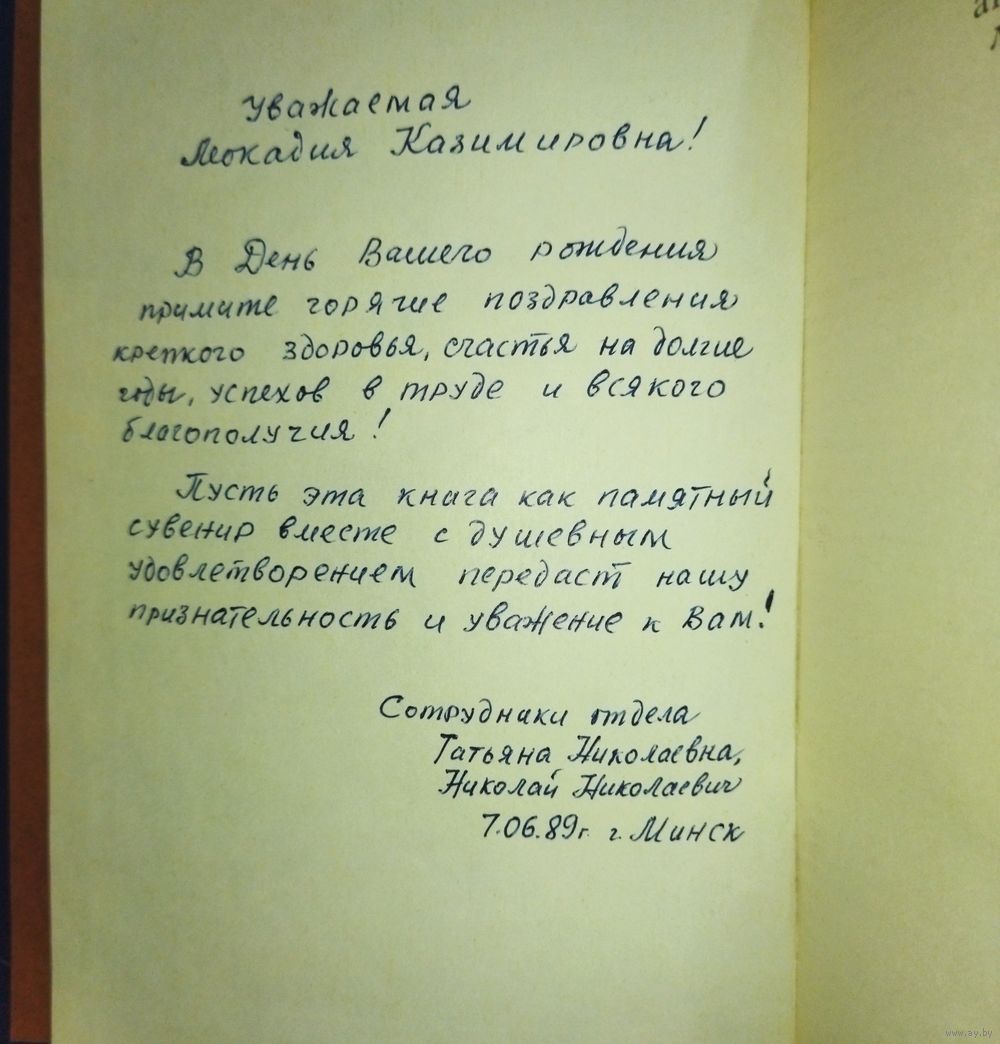 Уважаемая
Леокадия Казимировна!
В День Вашего рождения
примите горячие поздравления
крепкого здоровья, счастья на долгие
годы, успехов в труде и всякого
благополучия!
Пусть эта книга как памятный
сувенир вместе с душевным
удовлетворением передаст нашу
признательность и уважение к Вам!
Сотрудники отдела
Татьяна Николаевна,
Николай Николаевич
7.06.89г. г. Минск
www.ay.by